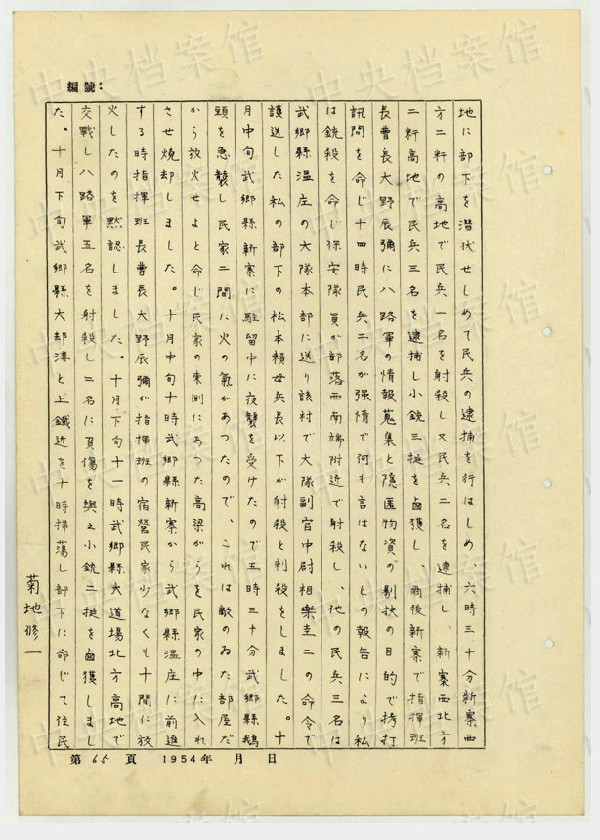 編號：
地に部下を潜伏せしめて民兵の逮捕を行はしめ、六時三十分新寨西
方二粁の高地で民兵一名を射殺し又民兵二名を逮捕し、新寨西北方
二粁高地で民兵三名を逮捕し小銃三挺を鹵獲し、爾後新寨で指揮班
長曹長大野辰彌に八路軍の情報蒐集と隠匿物資の剔抉の目的で拷打
訊問を命じ十四時民兵二名が强情で何も言はないとの報告により私
は銃殺を命じ保安隊員が部落西南端附近で射殺し、他の民兵三名は
武郷縣温庄の大隊本部に送り該村で大隊副官中尉相樂圭二の命令で
護送した私の部下の松本頼母兵長以下が射殺と刺殺をしました。十
月中旬武郷縣新寨に駐留中に夜襲を受けたので五時三十分武郷縣鵝
頭を急襲し民家二間に火の氣があつたので、これは敵のゐた部屋だ
から放火せよと命じ民家の東側にあつた高梁がらを民家の中に入れ
させ燒却しました。十月中旬十時武郷縣新寨から武郷縣温庄に前進
する時指揮班長曹長大野辰彌が指揮班の宿營民家少なくも十間に放
火したのを默認しました。十月下旬十一時武郷縣大道場北方高地で
交戰し八路軍五名を射殺し二名に負傷を與え小銃二挺を鹵獲しまし
た。十月下旬武郷縣大却溝と上鐵近を十時掃蕩し部下に命じて住民
菊地修一
第 65 頁 1954年 月 日
中央档案馆